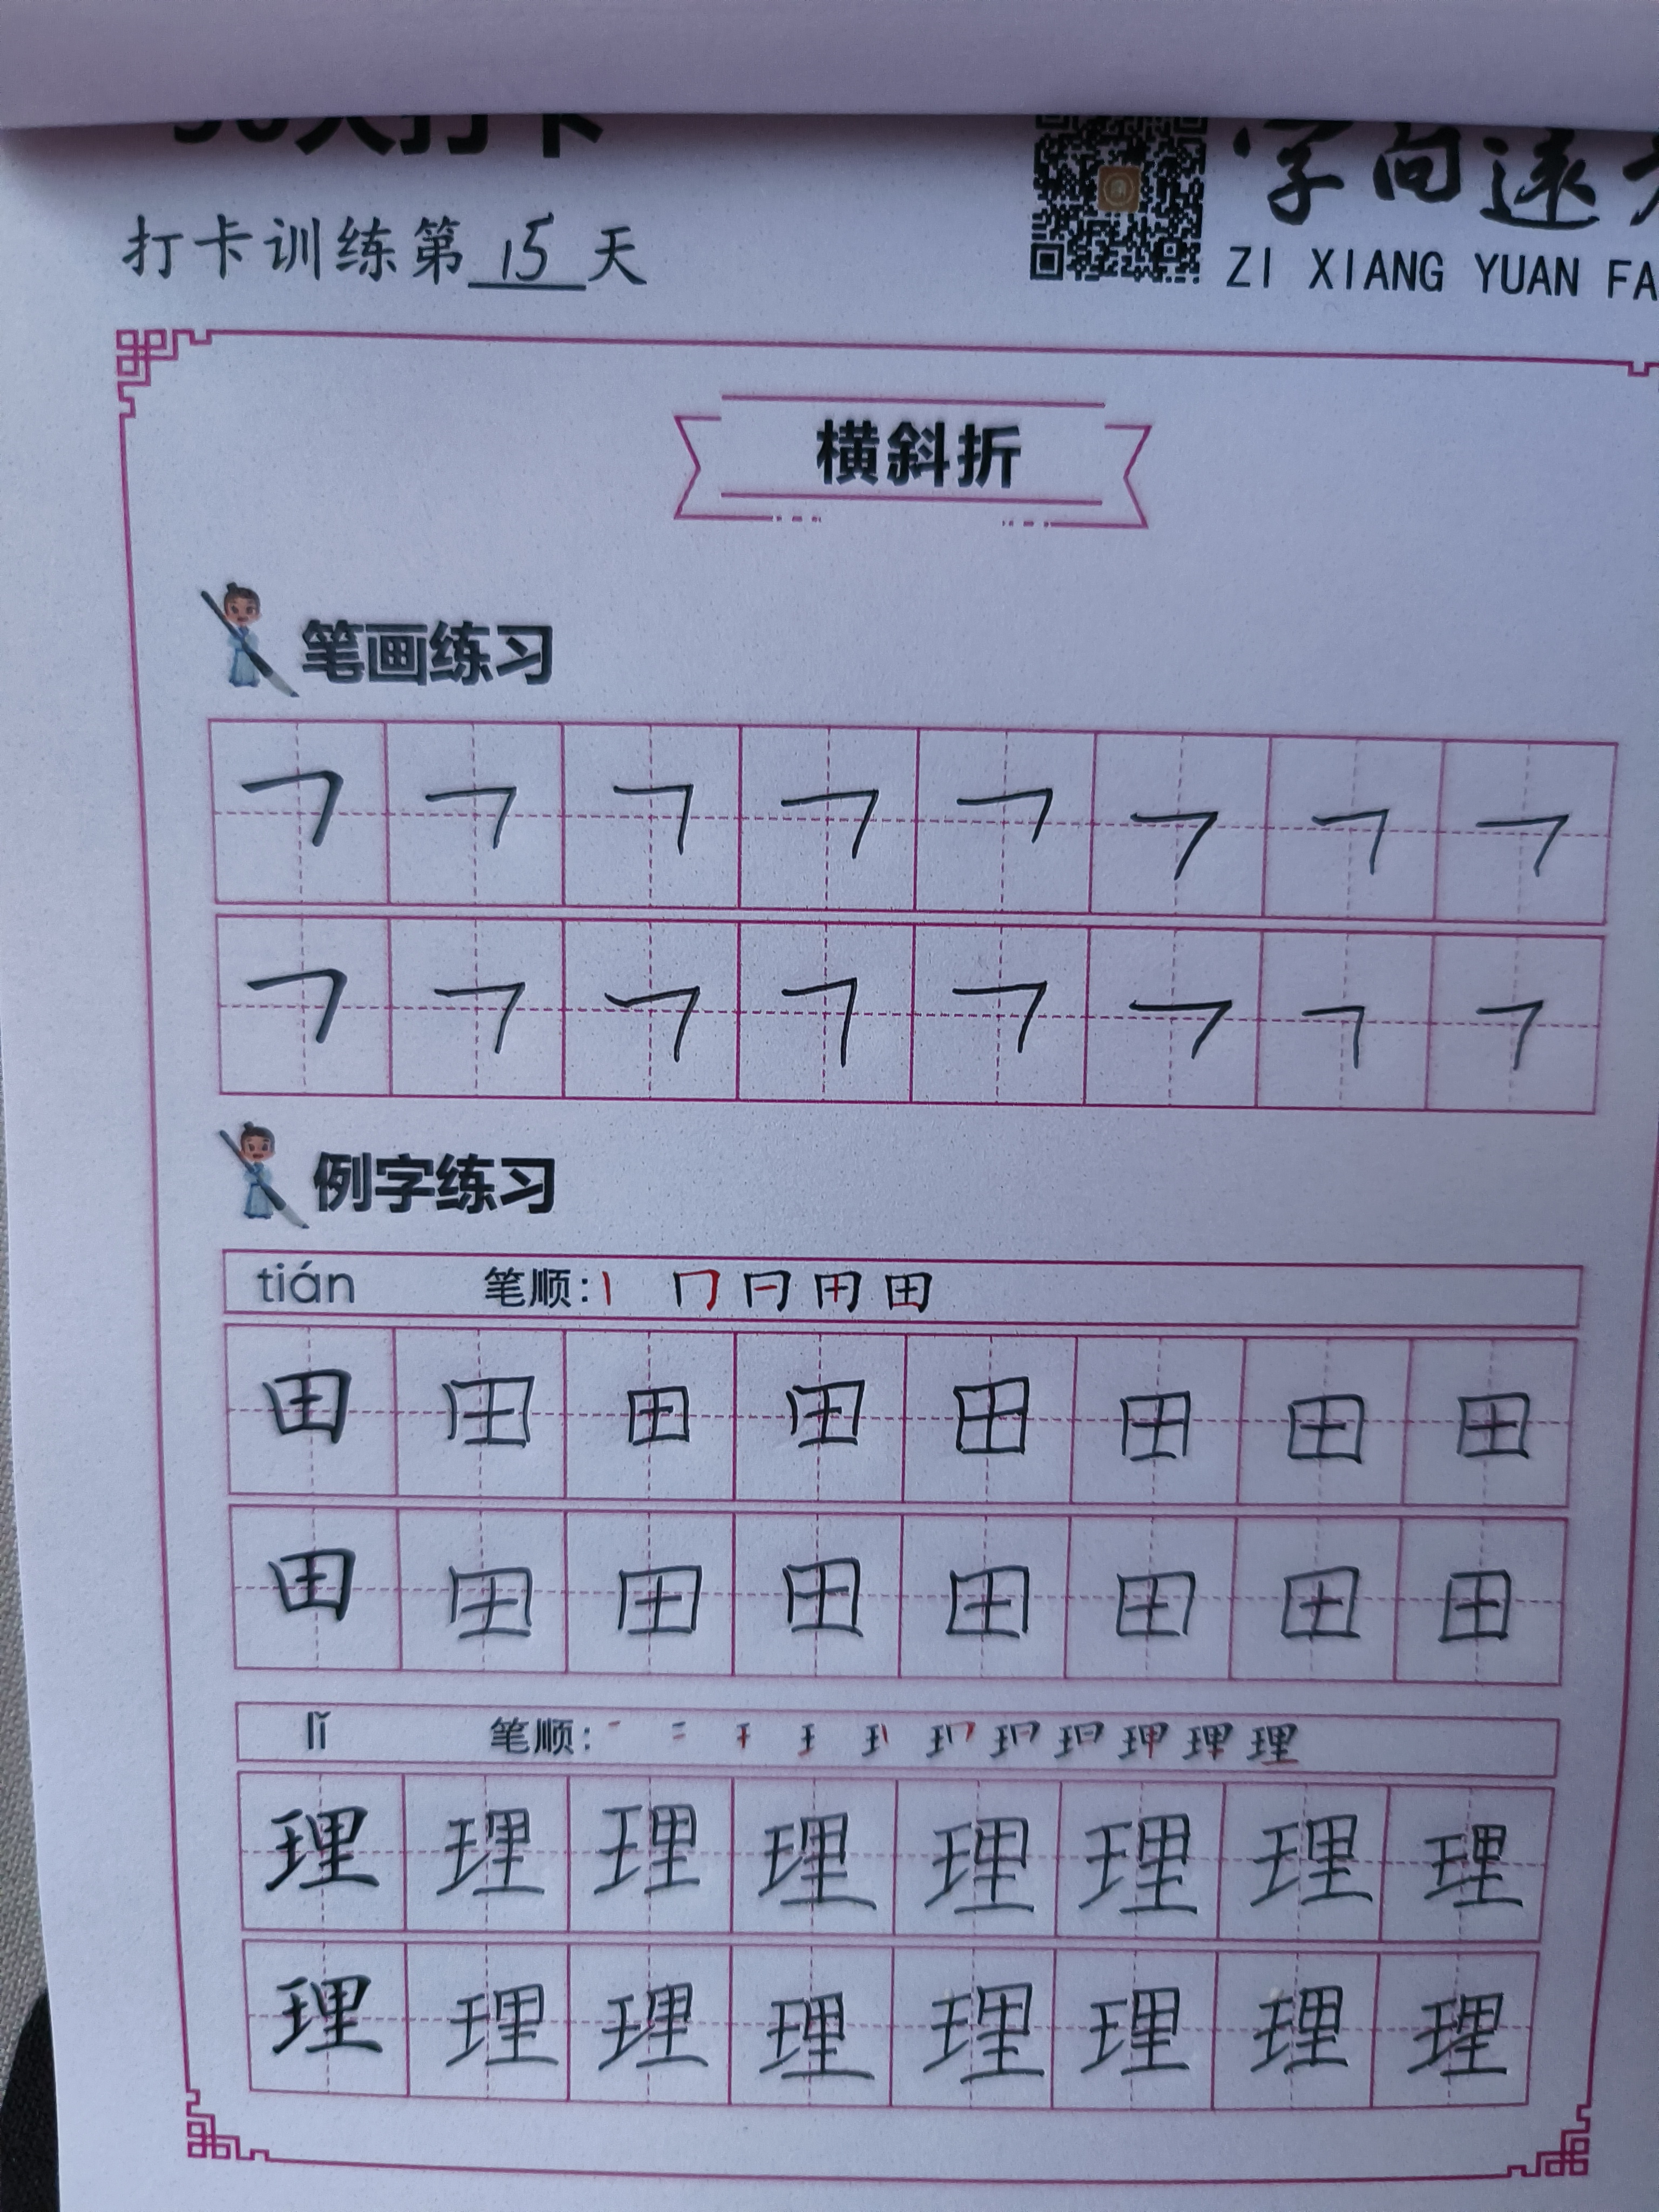 打卡训练第15天
字向远
ZI XIANG YUAN FA
横斜折
笔画练习
㇕ ㇕ ㇕ ㇕ ㇕ ㇕ ㇕ ㇕
㇕ ㇕ ㇕ ㇕ ㇕ ㇕ ㇕ ㇕
例字练习
tián 笔顺:
田 田 田 田 田 田 田 田
田 田 田 田 田 田 田 田
lǐ 笔顺:
理 理 理 理 理 理 理 理
理 理 理 理 理 理 理 理